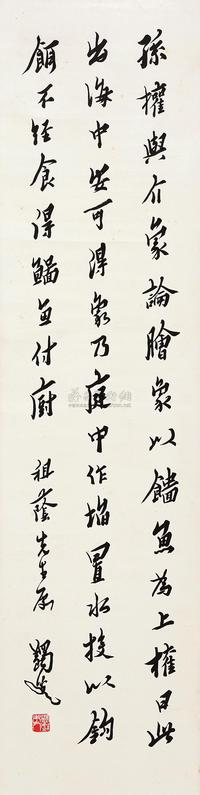 孫權與介象論膾象以鯔魚為上權曰此
出海中安可得象乃庭中作埳置水投以鈎
餌不經食得鯔魚付廚
祖蔭先生屬